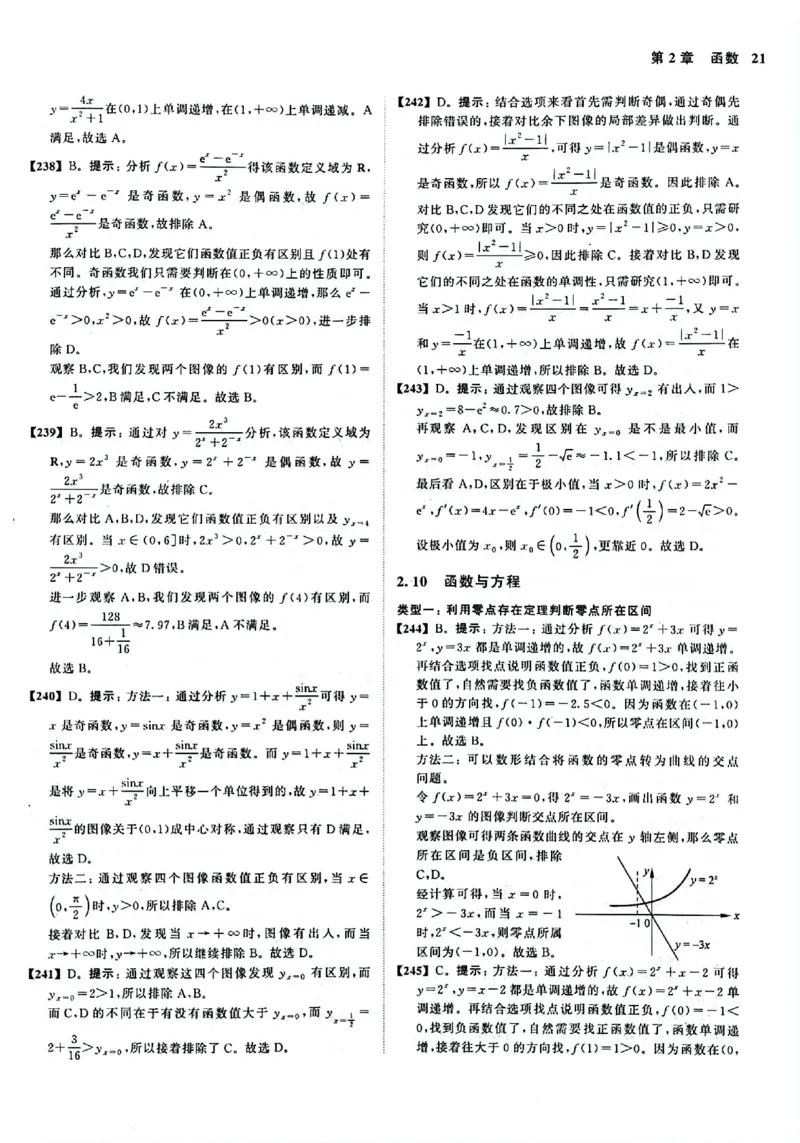 第2章 函数 21
y=4x/(x²+1)在(0,1)上单调递增,在(1,+∞)上单调递减。A
满足,故选 A。
【238】B。提示:分析 f(x)=(eˣ-e⁻ˣ)/x²得该函数定义域为 R,
y=eˣ-e⁻ˣ 是奇函数,y=x² 是偶函数,故 f(x)=
(eˣ-e⁻ˣ)/x²是奇函数,故排除 A。
那么对比 B,C,D,发现它们函数值正负有区别且 f(1)处有
不同。奇函数我们只需要判断在(0,+∞)上的性质即可。
通过分析,y=eˣ-e⁻ˣ 在(0,+∞)上单调递增,那么 eˣ-
e⁻ˣ>0,x²>0,故 f(x)=(eˣ-e⁻ˣ)/x²>0(x>0),进一步排
除 D。
观察 B,C,我们发现两个图像的 f(1)有区别,而 f(1)=
e-1/e>2,B 满足,C 不满足。故选 B。
【239】B。提示:通过对 y=2x³/(2ˣ+2⁻ˣ)分析,该函数定义域为
R,y=2x³ 是奇函数,y=2ˣ+2⁻ˣ 是偶函数,故 y=
2x³/(2ˣ+2⁻ˣ)是奇函数,故排除 C。
那么对比 A,B,D,发现它们函数值正负有区别以及 yₓ₌₄
有区别。当 x∈(0,6]时,2x³>0,2ˣ+2⁻ˣ>0,故 y=
2x³/(2ˣ+2⁻ˣ)>0,故 D 错误。
进一步观察 A,B,我们发现两个图像的 f(4)有区别,而
f(4)=128/(16+1/16)≈7.97,B 满足,A 不满足。
故选 B。
【240】D。提示:方法一:通过分析 y=1+x+sinx/x²可得 y=
x 是奇函数,y=sinx 是奇函数,y=x² 是偶函数,则 y=
sinx/x²是奇函数,y=x+sinx/x²是奇函数。而 y=1+x+sinx/x²
是将 y=x+sinx/x²向上平移一个单位得到的,故 y=1+x+
sinx/x²的图像关于(0,1)成中心对称,通过观察只有 D 满足,
故选 D。
方法二:通过观察四个图像函数值正负有区别,当 x∈
(0,π/2)时,y>0,所以排除 A,C。
接着对比 B,D,发现当 x→+∞时,图像有出入,而当
x→+∞时,y→+∞,所以继续排除 B。故选 D。
【241】D。提示:通过观察这四个图像发现 yₓ₌₀ 有区别,而
yₓ₌₀=2>1,所以排除 A,B。
而 C,D 的不同在于有没有函数值大于 yₓ₌₀,而 y_{x=1/2}=
2+3/16>yₓ₌₀,所以接着排除了 C。故选 D。
【242】D。提示:结合选项来看首先需判断奇偶,通过奇偶先
排除错误的,接着对比余下图像的局部差异做出判断。通
过分析 f(x)=|x²-1|/x,可得 y=|x²-1|是偶函数,y=x
是奇函数,所以 f(x)=|x²-1|/x是奇函数。因此排除 A。
对比 B,C,D 发现它们的不同之处在函数值的正负,只需研
究(0,+∞)即可。当 x>0 时,y=|x²-1|≥0,y=x>0,
则 f(x)=|x²-1|/x≥0,因此排除 C。接着对比 B,D 发现
它们的不同之处在函数的单调性,只需研究(1,+∞)即可。
当 x>1 时,f(x)=|x²-1|/x=(x²-1)/x=x+(-1)/x,又 y=x
和 y=(-1)/x在(1,+∞)上单调递增,故 f(x)=|x²-1|/x在
(1,+∞)上单调递增,所以排除 B。故选 D。
【243】D。提示:通过观察四个图像可得 yₓ₌₂ 有出入,而 1>
yₓ₌₂=8-e²≈0.7>0,故排除 B。
再观察 A,C,D,发现区别在 yₓ₌₀ 是不是最小值,而
yₓ₌₀=-1,y_{x=1/2}=1/2-√e≈-1.1<-1,所以排除 C。
最后看 A,D,区别在于极小值,当 x>0 时,f(x)=2x²-
eˣ,f′(x)=4x-eˣ,f′(0)=-1<0,f′(1/2)=2-√e>0。
设极小值为 x₀,则 x₀∈(0,1/2),更靠近 0。故选 D。
2.10 函数与方程
类型一:利用零点存在定理判断零点所在区间
【244】B。提示:方法一:通过分析 f(x)=2ˣ+3x 可得 y=
2ˣ,y=3x 都是单调递增的,故 f(x)=2ˣ+3x 单调递增。
再结合选项找点说明函数值正负,f(0)=1>0,找到正函
数值了,自然需要找负函数值了,函数单调递增,接着往小
于 0 的方向找,f(-1)=-2.5<0。因为函数在(-1,0)
上单调递增且 f(0)·f(-1)<0,所以零点在区间(-1,0)
上。故选 B。
方法二:可以数形结合将函数的零点转为曲线的交点
问题。
令 f(x)=2ˣ+3x=0,得 2ˣ=-3x,画出函数 y=2ˣ 和
y=-3x 的图像判断交点所在区间。
观察图像可得两条函数曲线的交点在 y 轴左侧,那么零点
所在区间是负区间,排除
C,D。
经计算可得,当 x=0 时,
2ˣ>-3x,而当 x=-1
时,2ˣ<-3x,则零点所属
区间为(-1,0)。故选 B。
y
y=2ˣ
-1 0
x
y=-3x
【245】C。提示:方法一:通过分析 f(x)=2ˣ+x-2 可得
y=2ˣ,y=x-2 都是单调递增的,故 f(x)=2ˣ+x-2 单
调递增。再结合选项找点说明函数值正负,f(0)=-1<
0,找到负函数值了,自然需要找正函数值了,函数单调递
增,接着往大于 0 的方向找,f(1)=1>0。因为函数在(0,